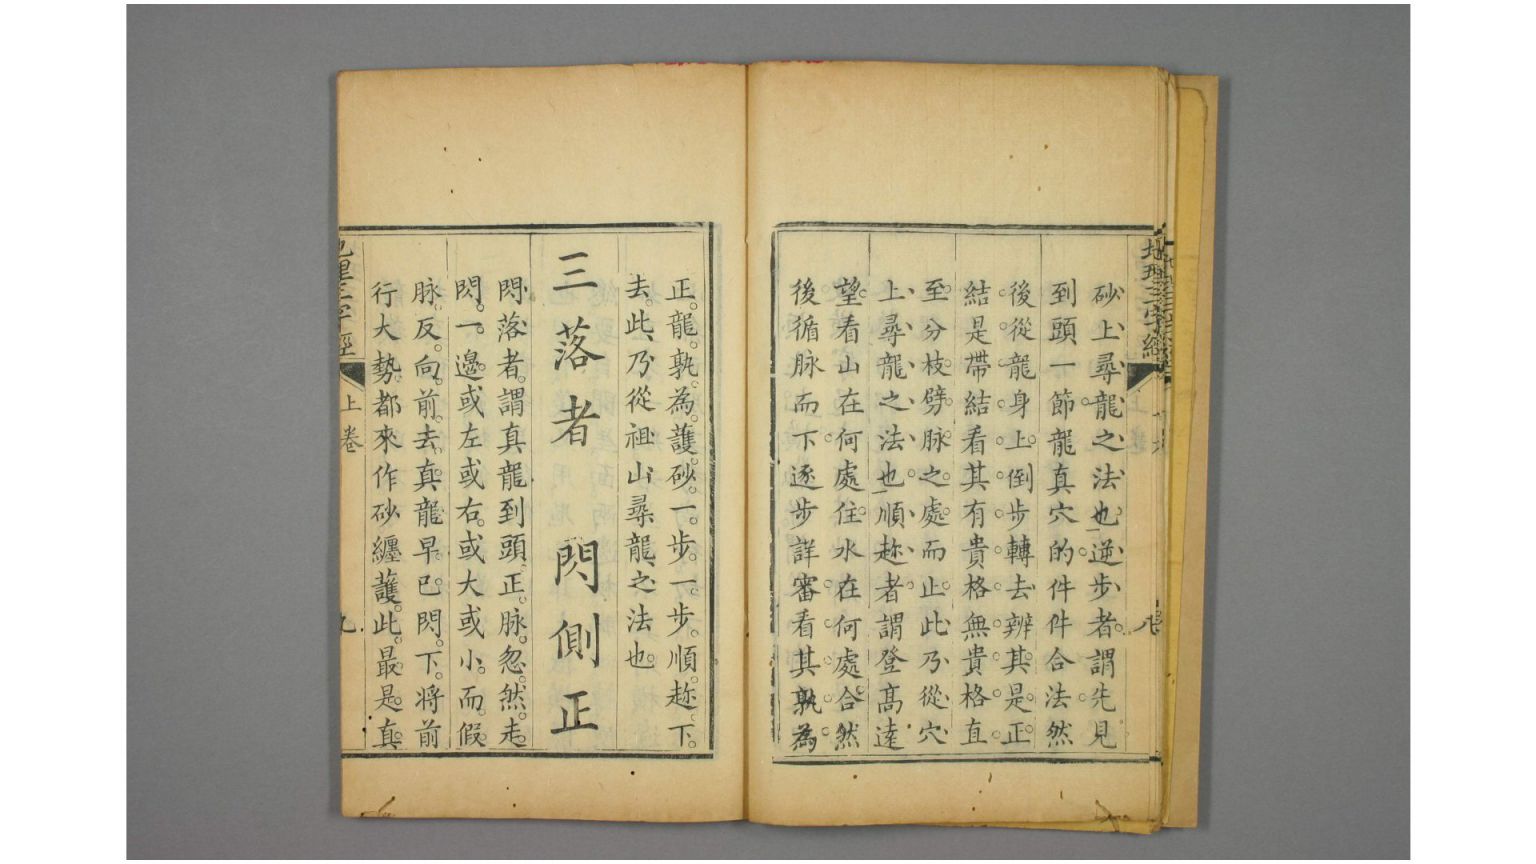 地理三字經
砂上尋龍之法也逆步者謂先見
到頭一節龍真穴的件件合法然
後從龍身上倒步轉去辨其是正
結是帶結看其有貴格無貴格直
至分枝劈脉之處而止此乃從穴
上尋龍之法也順趂者謂登高遠
望看山在何處住水在何處合然
後循脉而下逐步詳審看其孰為
正龍孰為護砂一步一步順趂下
去此乃從祖山尋龍之法也
三落者 閃側正
閃落者謂真龍到頭正脉忽然走
閃一邊或左或右或大或小而假
脉反向前去真龍早已閃下將前
行大勢都來作砂纏護此最是真
地理三字經
上卷
九